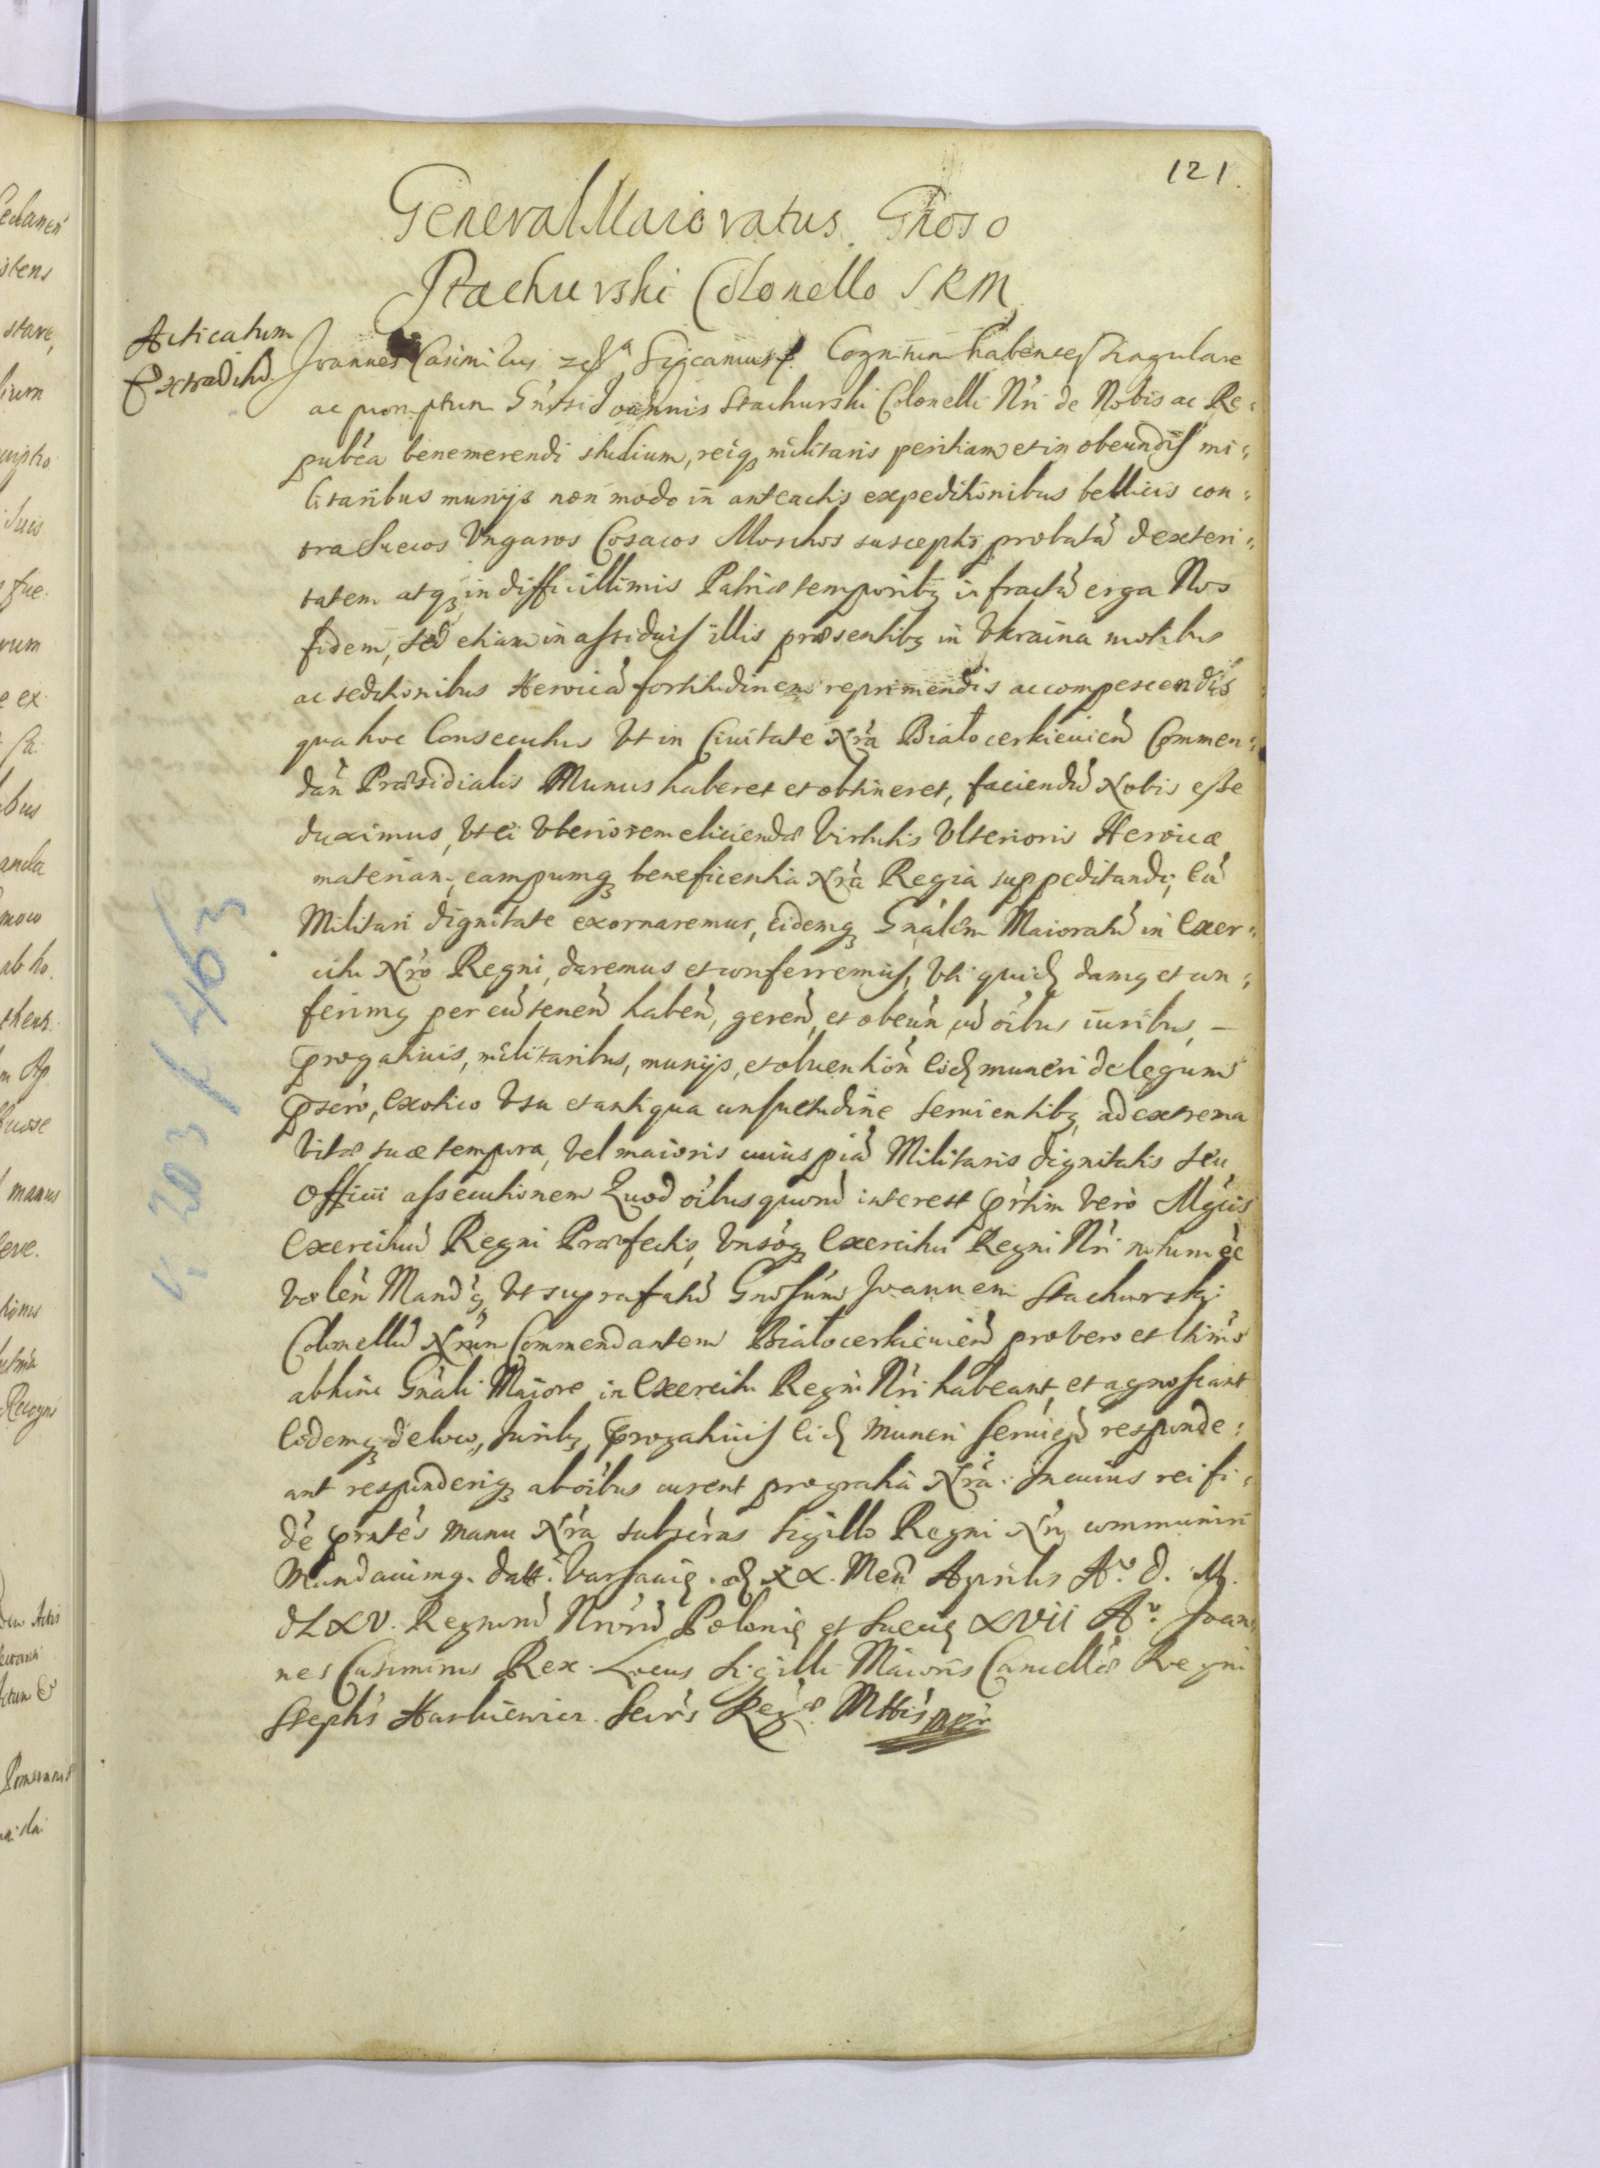 121.
General Maioratus Gnoso
Stachurski Colonello SRM
Acticatum
Extraditu
Joannes Casimirus etc Sigcamus Cognitum habentes singulare
ac promptum Gnosi Joannis Stachurski Colonelli Nri de Nobis ac Re:
publca benemerendi studium, reiq militaris peritiam et in obeundis mi:
litaribus munijs non modo in anteactis expeditionibus bellicis con:
tra Suecos Vngaros Cosacos Moschos susceptis probatā dexteri:
tatem atq in difficillimis Patriæ temporibq infractā erga Nos
fidem, sed etiam in assiduis illis præsentibq in Vkraina motibus
ac seditionibus Heroicā fortitudinem reprimendis ac compescendis
qua hoc Consecutus Vt in Ciuitate Nra Białocerkieuien Commen:
dan Præsidialis Munus haberet et obtineret, faciendū Nobis esse
duximus, Vt ei Vberiorem eliciendæ Virtutis Vlterioris Heroicæ
materiam, campumq beneficentia Nra Regia suppeditando, eā
Militari dignitate exornaremus, eidemq Gnalem Maioratū in Exer:
citu Nro Regni, daremus et conferremus, Vti quid damq et con:
ferimq per eū tenen haben, geren, et obeun, cū oibus iuribus, —
prrogatiuis, militaribus, munijs, et obuention eid muneri de legum
prscro, exotico Vsu et antiqua consuetudine seruientibq, ad extrema
Vitæ suæ tempora, Vel maioris cuiuspiā Militaris dignitatis seu
Officii assecutionem Quod oibus quorū interest prtim Vero Mgcis
Exercituū Regni Præfectis, Vnsoq Exercitui Regni Nri notum ee
Volen Mandq Vt suprafatū Gnosum Joannem Stachurski
Colonellū Nrum Commendantem Białocerkieuien pro vero et ltimo
abhinc Gnali Maiore in Exercitu Regni Nri habeant, et agnoscant
Eidemq de loco, Juribq prrogatiuis eid Muneri seruien responde:
ant responderiq ab oibus curent pro gratia Nra. In cuius rei fi:
de prntes Manu Nra subscras Sigillo Regni Nri communiri
Mandauimq. Datt. Varsauię. d XX. Men Aprilis Ao. D. M.
dLXV. Regnorū Nrorū Polonię et Suecię XVII Ao. Joan
nes Casimirus Rex. Locus Sigilli Maioris Cancellæ Regni
Stephs Hankiewicz. Secrs Regæ. Mttis mpr
V. 203 f 463